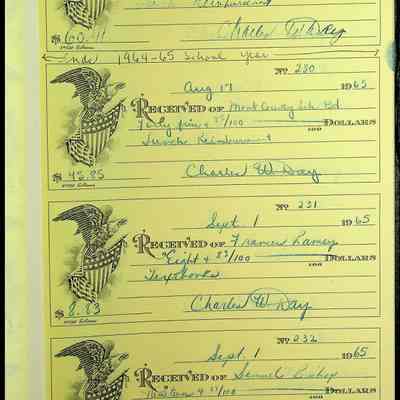 $60.41
Charles W Day
Ends 1964-65 School Year
No 230
Aug 17 1965
RECEIVED OF Mont County Sch Bd
Forty five & 85/100 DOLLARS
Lunch Reimbursement
$45.85 Charles W. Day
No 231
Sept. 1 1965
RECEIVED OF Frances Ramey
Eight & 83/100 DOLLARS
Textbooks
$8.83 Charles W. Day
No 232
Sept. 1 1965
RECEIVED OF Samuel Bishop
DOLLARS